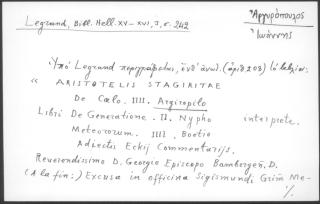 Legrand, Bibl. Hell. XV–XVI, 3, σ. 242
Ἀργυρόπουλος
Ἰωάννης
Ὑπὸ Legrand περιγράφεται, ἔνθ' ἀνωτ. (ἀριθ 208) τὸ βιβλίον:
« ARISTOTELIS STAGIRITAE
De Coelo. IIII. Argiropilo
Libri De Generatione. II. Nypho interprete.
Meteororum. IIII. Boetio
Adiectis Eckij Commentarijs.
Reverendissimo D. Georgio Episcopo Bambergeñ. D.
(A la fin:) Excusa in officina Sigismundi Grim̃ Me-
·/.